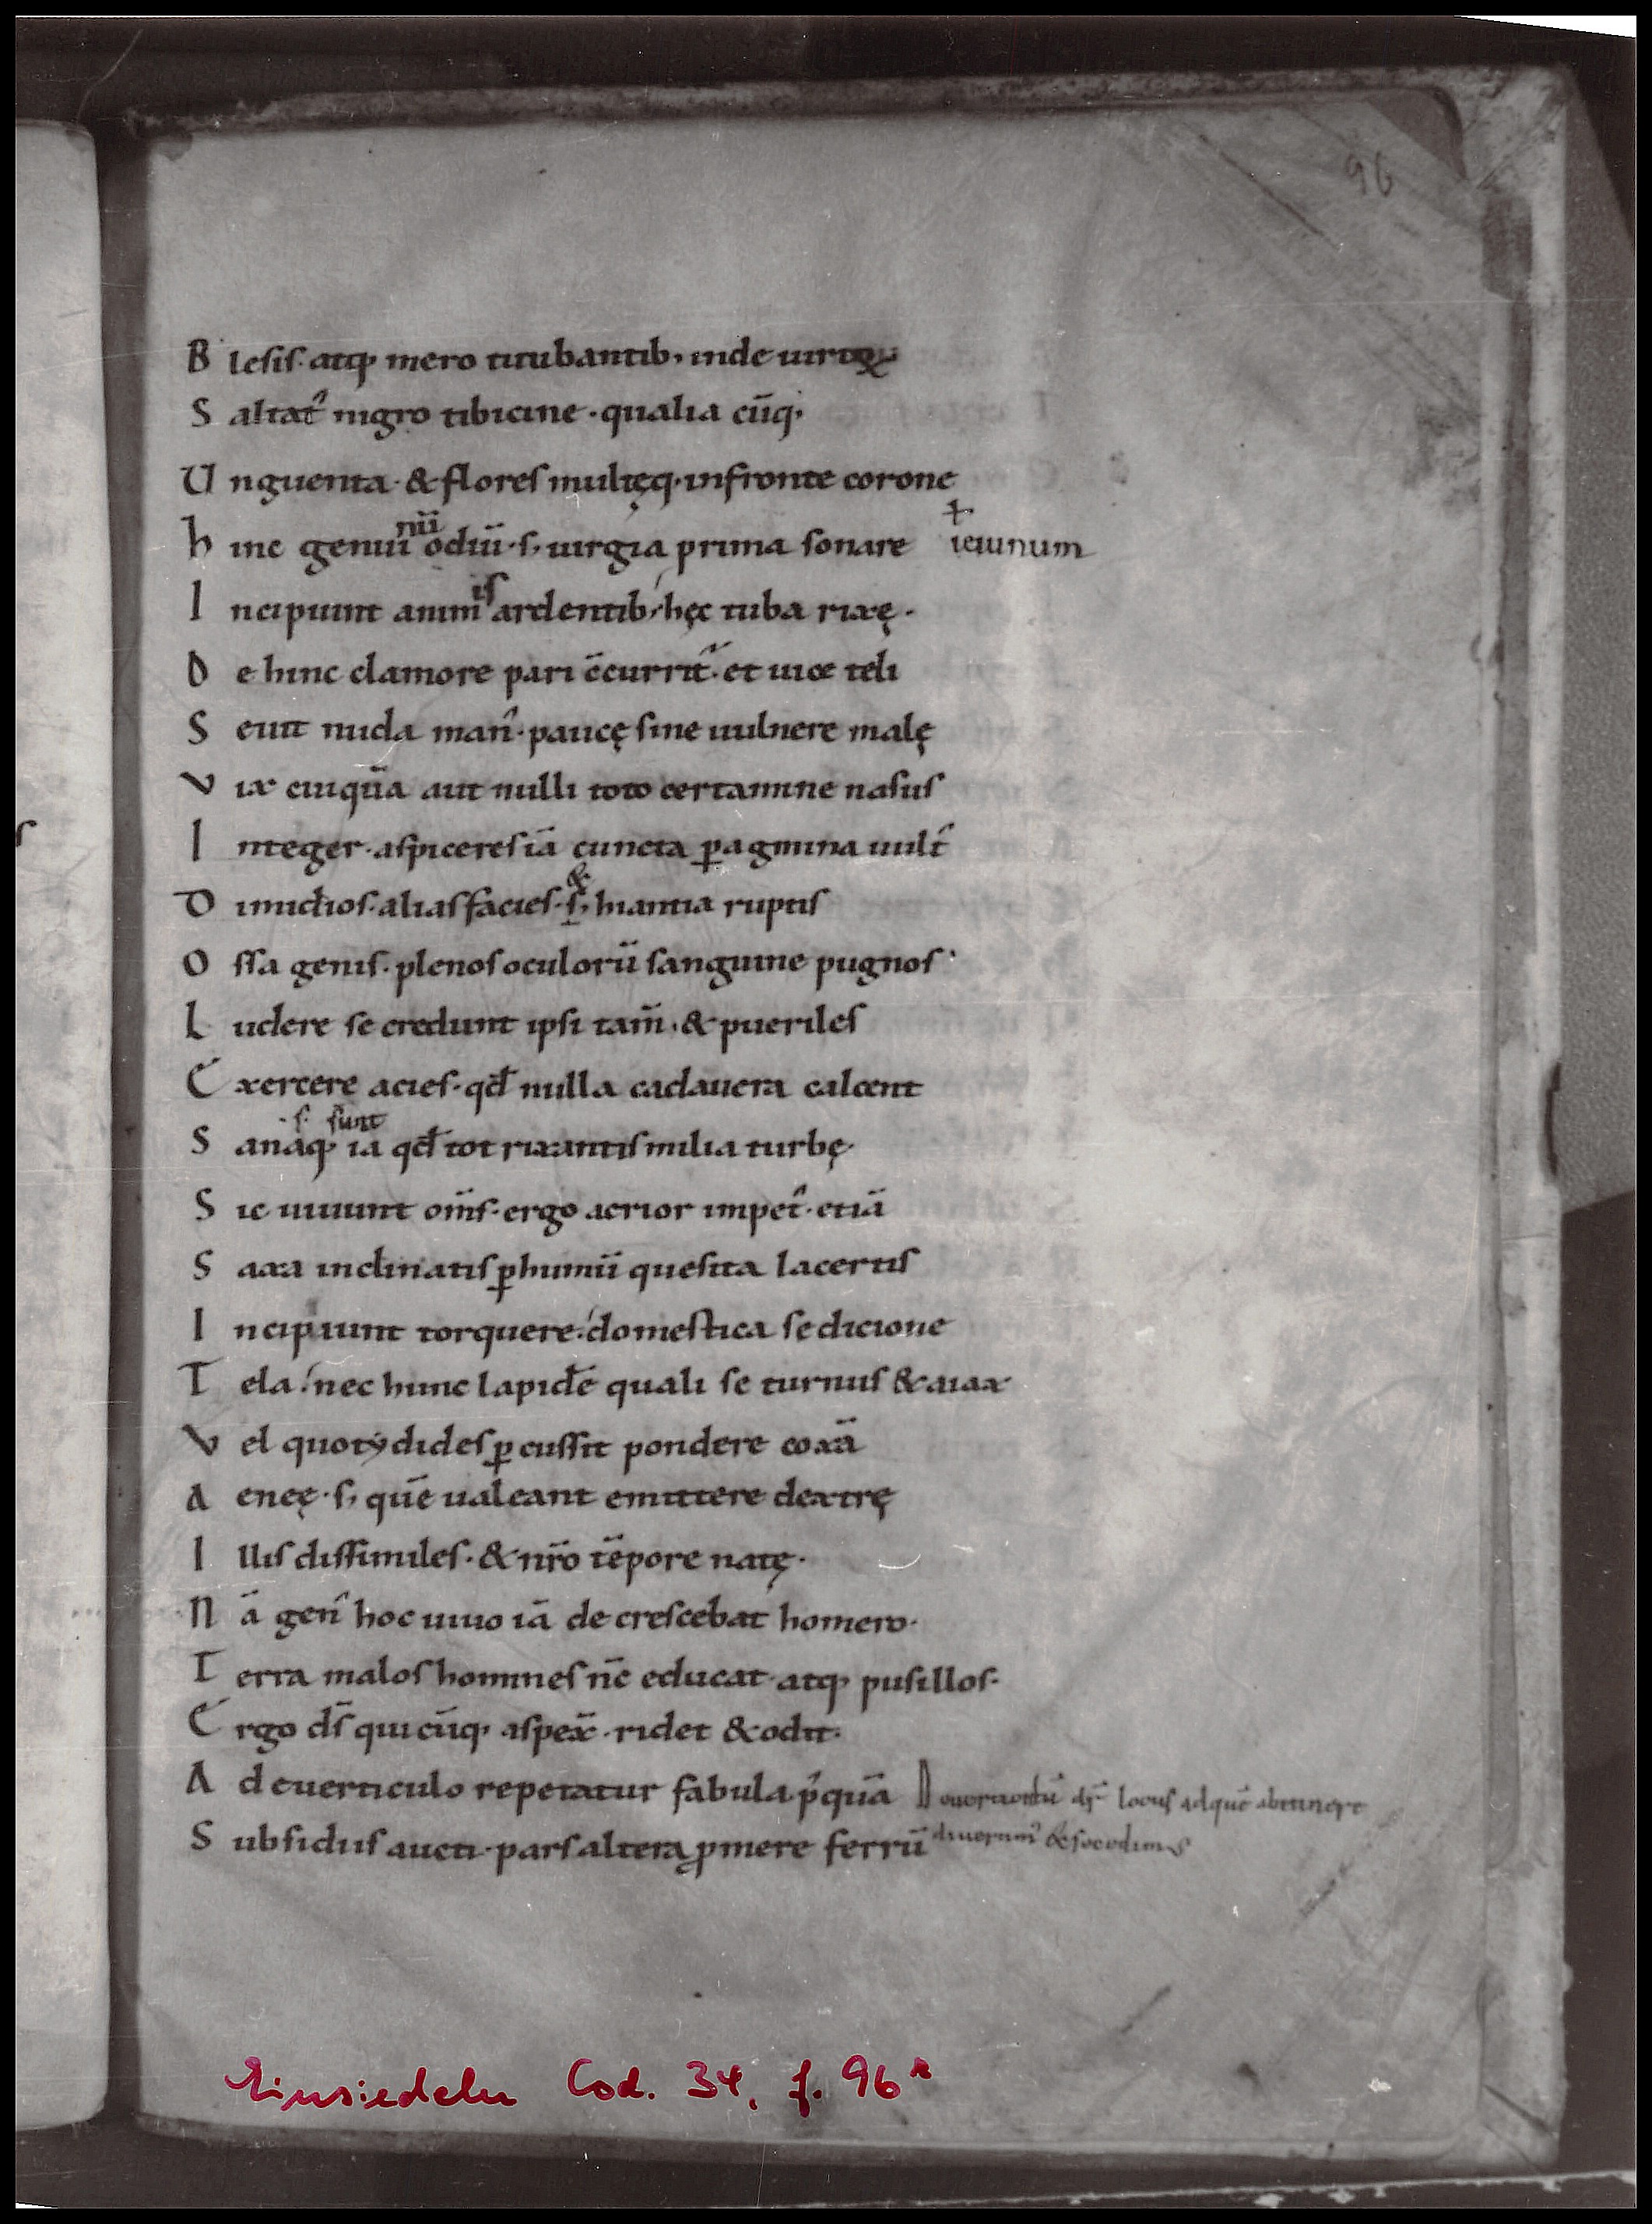 96
B lesis. atq; mero titubantib; inde uiroꝝ
S altat᷒ nigro tibicine. qualia cūq;
U nguenta. & flores multęq; infronte corone
nū
h inc geniui odiū. s; uirgia prima sonare ieiunum
is
I ncipiunt anim ardentib; hęc tuba rixę.
D e hinc clamore pari c̄currit᷒. et uice teli
S euit nuda man᷒. paucę sine uulnere malę
V ix cuiquā aut nulli toto certamine nasus
I nteger. aspiceres iā cuncta ꝑagmina uult᷒
&
D imidios. alias facies. s; hiantia ruptis
O ssa genis. plenos oculorū sanguine pugnos
L udere se credunt ipsi tam̄. & pueriles
E xercere acies. qđ nulla cadauera calcent
.s. sunt
S anaq; ia qđ tot rixantis milia turbę.
S ic uiuunt om̄s. ergo acrior impet᷒. etiā
S axa inclinatis ꝑhumū quesita lacertis
I ncipiunt torquere. domestica sedicione
T ela. nec hunc lapidē quali se turnus & aiax
V el quo tẏdides ꝑcussit pondere coxā
A eneę. s; quē ualeant emittere dextrę
I llis dissimiles. & nr̄o tēpore natę.
N ā gen᷒ hoc uiuo iā de crescebat homero.
T erra malos homines nc̄ educat. atq; pusillos.
E rgo ds̄ quicūq; aspex̄. ridet & odit.
A deuerticulo repetatur fabula. p᷒quā locus adquē
S ubsidiis aucti. pars altera ꝓmere ferrū
Einsiedeln Cod. 34, f. 96r